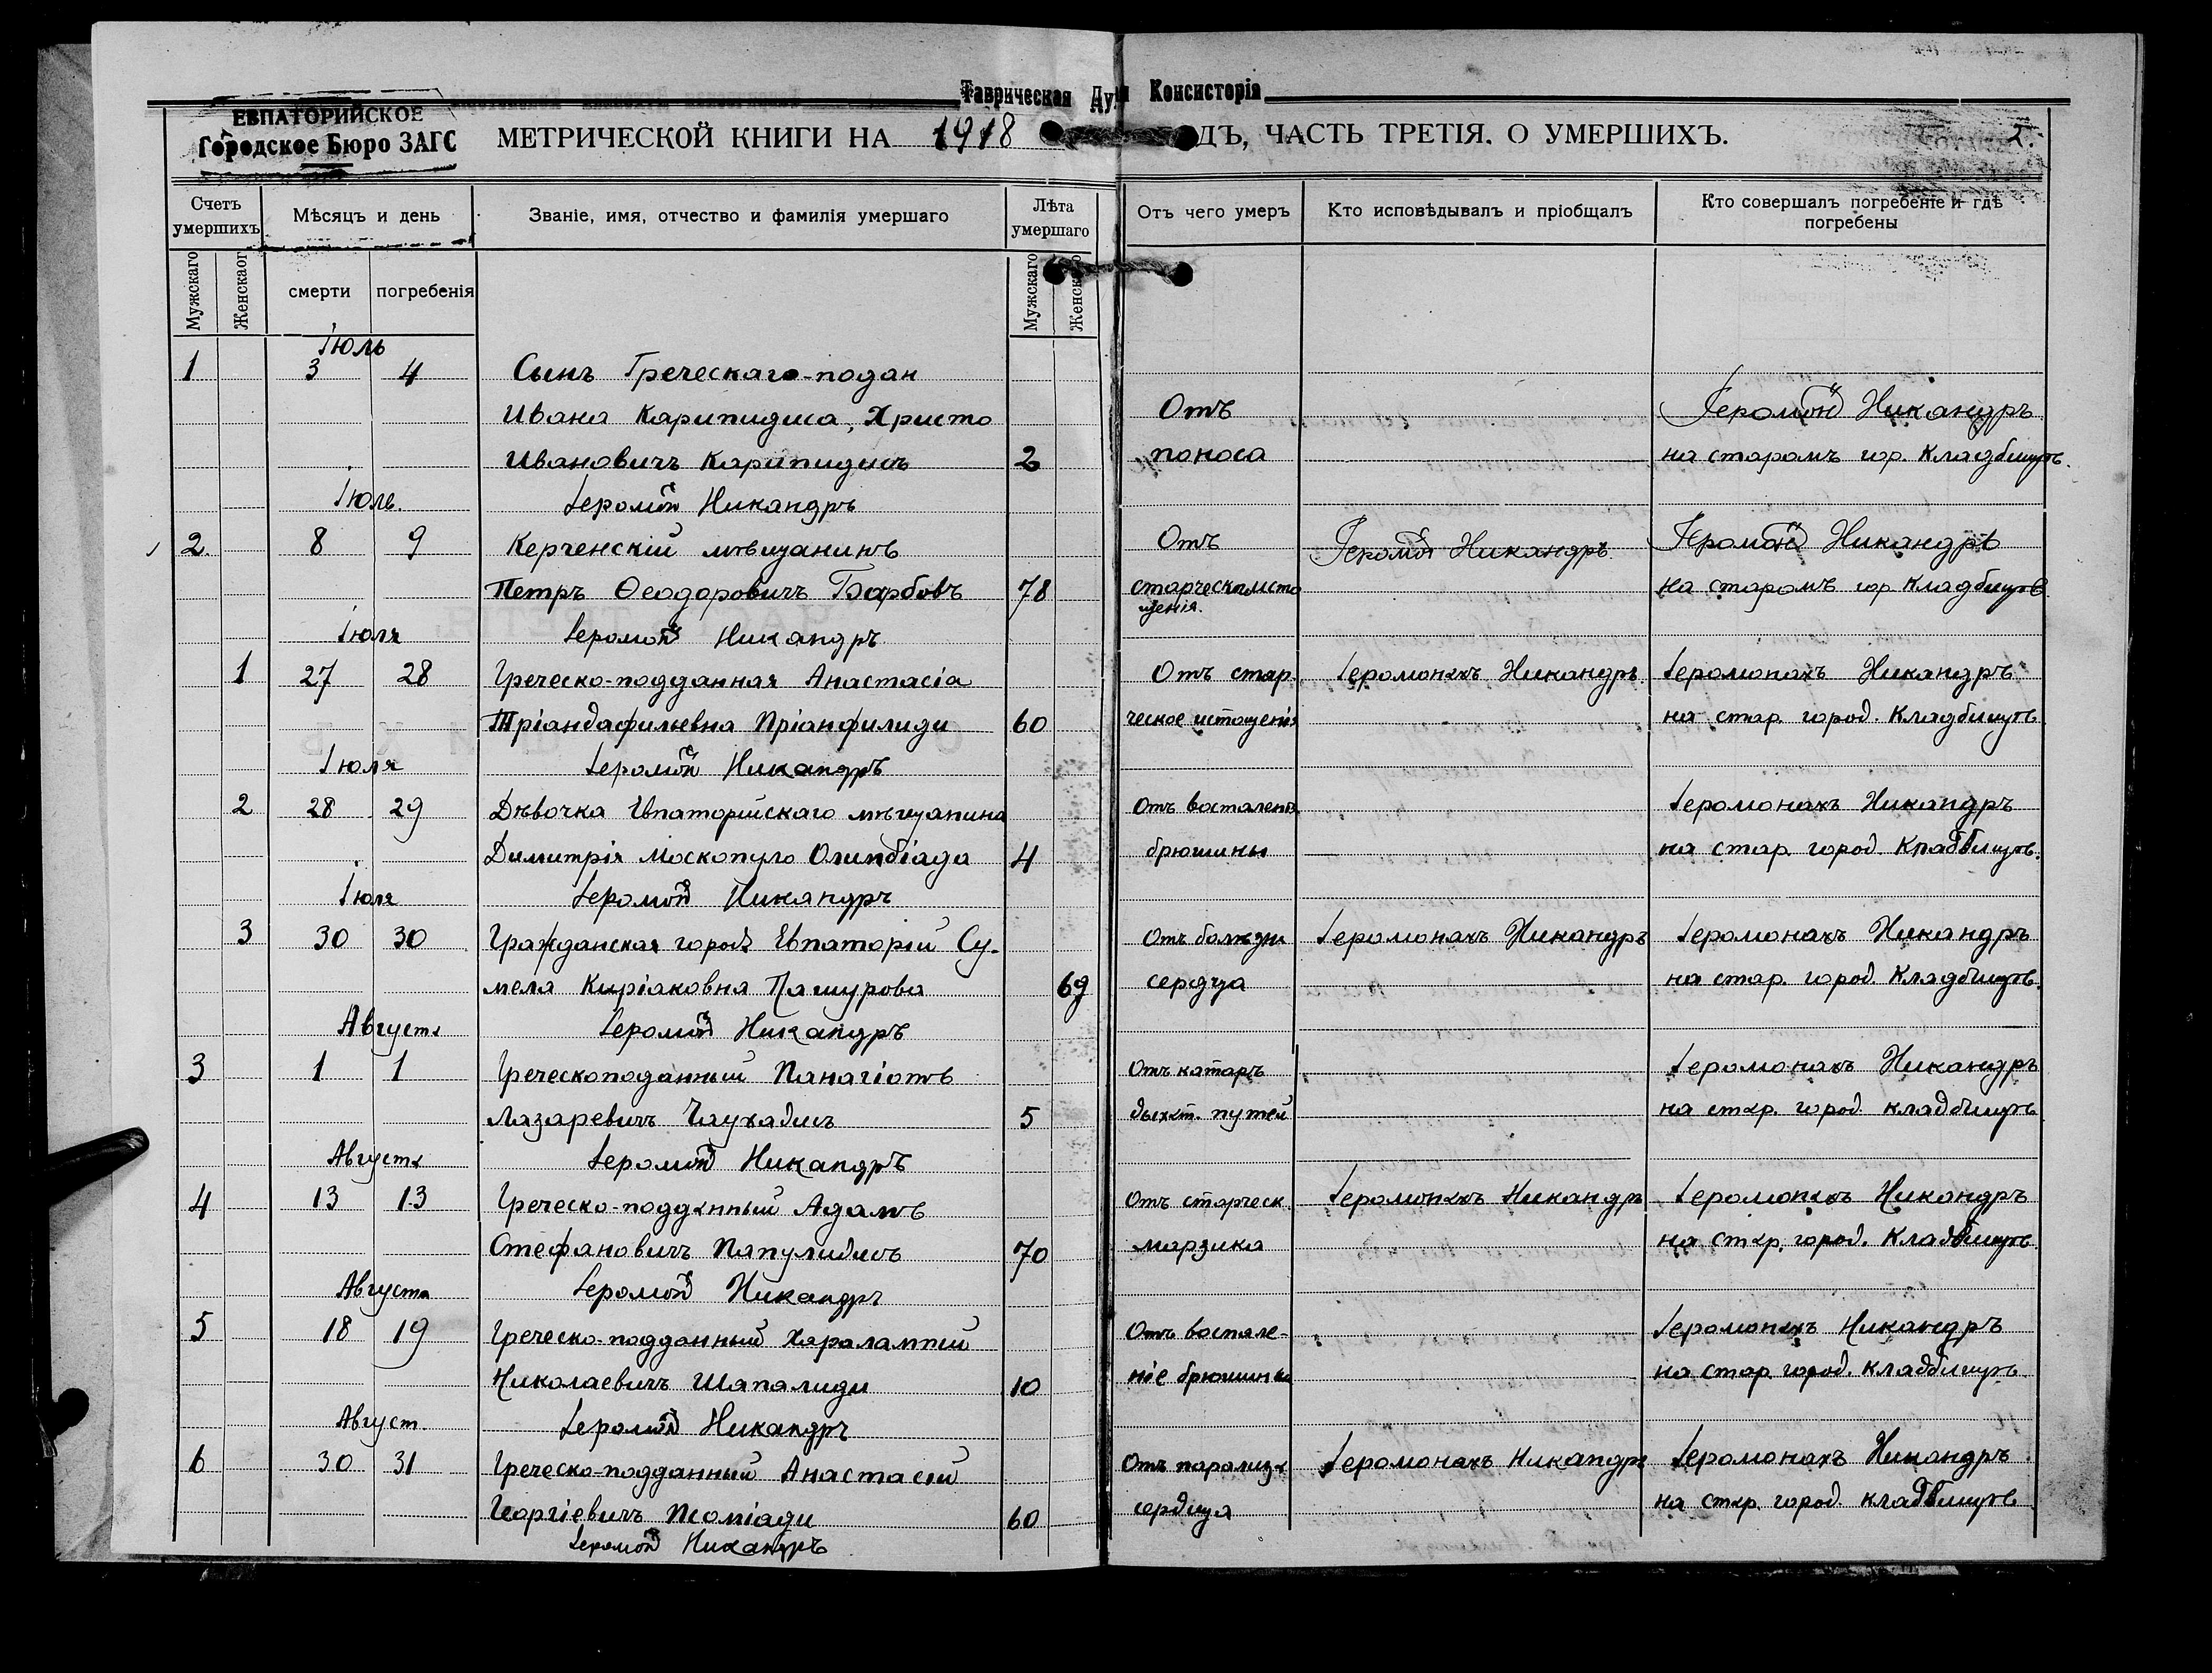 Таврическая Дух Консисторія
ЕВПАТОРИЙСКОЕ
Городское Бюро ЗАГС
МЕТРИЧЕСКОЙ КНИГИ НА 1918 ДЪ, ЧАСТЬ ТРЕТІЯ. О УМЕРШИХЪ. 2.
Счетъ умершихъ
Мѣсяцъ и день
Званіе, имя, отчество и фамилія умершаго
Лѣта умершаго
Отъ чего умеръ
Кто исповѣдывалъ и пріобщалъ
Кто совершалъ погребеніе и гдѣ погребены
Мужскаго
Женскаог
смерти
погребенія
Мужскаго
Женскаго
Іюль
1 3 4 Сынъ Греческаго-подан
Ивана Карипидиса, Христо Отъ Іеромон Никандръ
Ивановичъ Карипидисъ 2 поноса на старомъ гор. Кладбищѣ.
Іюль. Іеромон Никандръ
2. 8 9 Керченскій мѣщанинъ Отъ Іеромон Никандръ Іеромон Никандръ
Петръ Ѳеодоровичъ Барбовъ 78 старческ. исто на старомъ гор Кладбищѣ
щенія.
Іюля Іеромон Никандръ
1 27 28 Греческо-подданная Анастасіа Отъ стар. Іеромонахъ Никандръ Іеромонахъ Никандръ
Тріандафильевна Пріанфилиди 60 ческое истощенія на стар. город. Кладбищѣ
Іюля Іеромон Никандръ
2 28 29 Дѣвочка Евпаторійскаго мѣщанина Отъ воспаленія Іеромонахъ Никандръ
Димитрія Москопуло Олимбіада 4 брюшины на стар. город. Кладбищѣ.
Іюля Іеромон Никандръ
3 30 30 Гражданская городъ Евпаторіи Су- Отъ болѣзни Іеромонахъ Никандръ Іеромонахъ Никандръ
мела Киріаковна Пашурова 69 сердца на стар. город. Кладбищѣ.
Августа Іеромон Никандръ
3 1 1 Греческоподанный Панагіотъ Отъ катаръ Іеромонахъ Никандръ
Лазаревичъ Чаухадисъ 5 дыхат. путей на стар. город. кладбищѣ
Августа Іеромон Никандръ
4 13 13 Греческо-подданный Адамъ Отъ старческ. Іеромонахъ Никандръ Іеромонахъ Никандръ
Стефановичъ Папулидисъ 70 маразика на стар. город. Кладбищѣ
Августа Іеромон Никандръ
5 18 19 Греческо-подданный Харалампій Отъ воспале- Іеромонахъ Никандръ
Николаевичъ Шапалиди 10 ніе брюшины на стар. город. кладбищѣ
Август. Іеромон Никандръ
6 30 31 Греческо-подданный Анастасій Отъ парализа Іеромонахъ Никандръ Іеромонахъ Никандръ
Георгіевичъ Псоміади 60 сердца на стар. город. кладбищѣ
Іеромон Никандръ